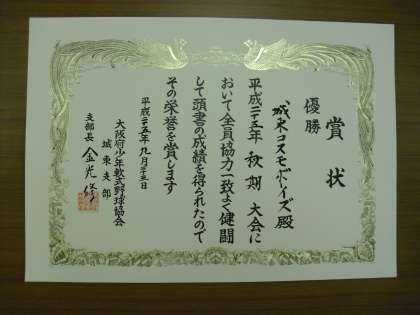 賞状
優勝
城東コスモボーイズ殿
平成二十五年秋期大会に
おいて全員協力一致よく健闘
して頭書の成績を得られたので
その栄誉を賞します
平成二十五年九月二十三日
大阪府少年軟式野球協会
城東支部
支部長 金光